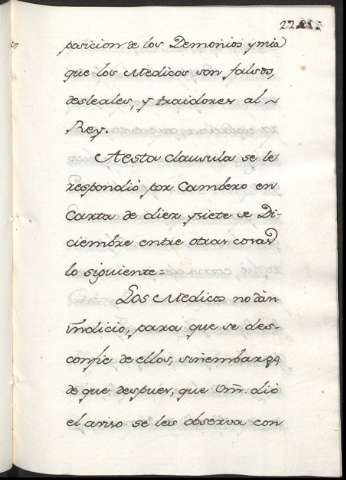 posicion de los Demonios y mia
que los Medicos son falsos,
desleales, y traidores al
Rey.
A esta clausula se le
respondió por Cambero en
Carta de diez y siete de Di-
ciembre entre otras cosas
lo siguiente =
Los Medicos no dàn
indicio, para que se des-
confie de ellos, sinembargo
de que despues, que Vm. dió
el aviso se les observa con